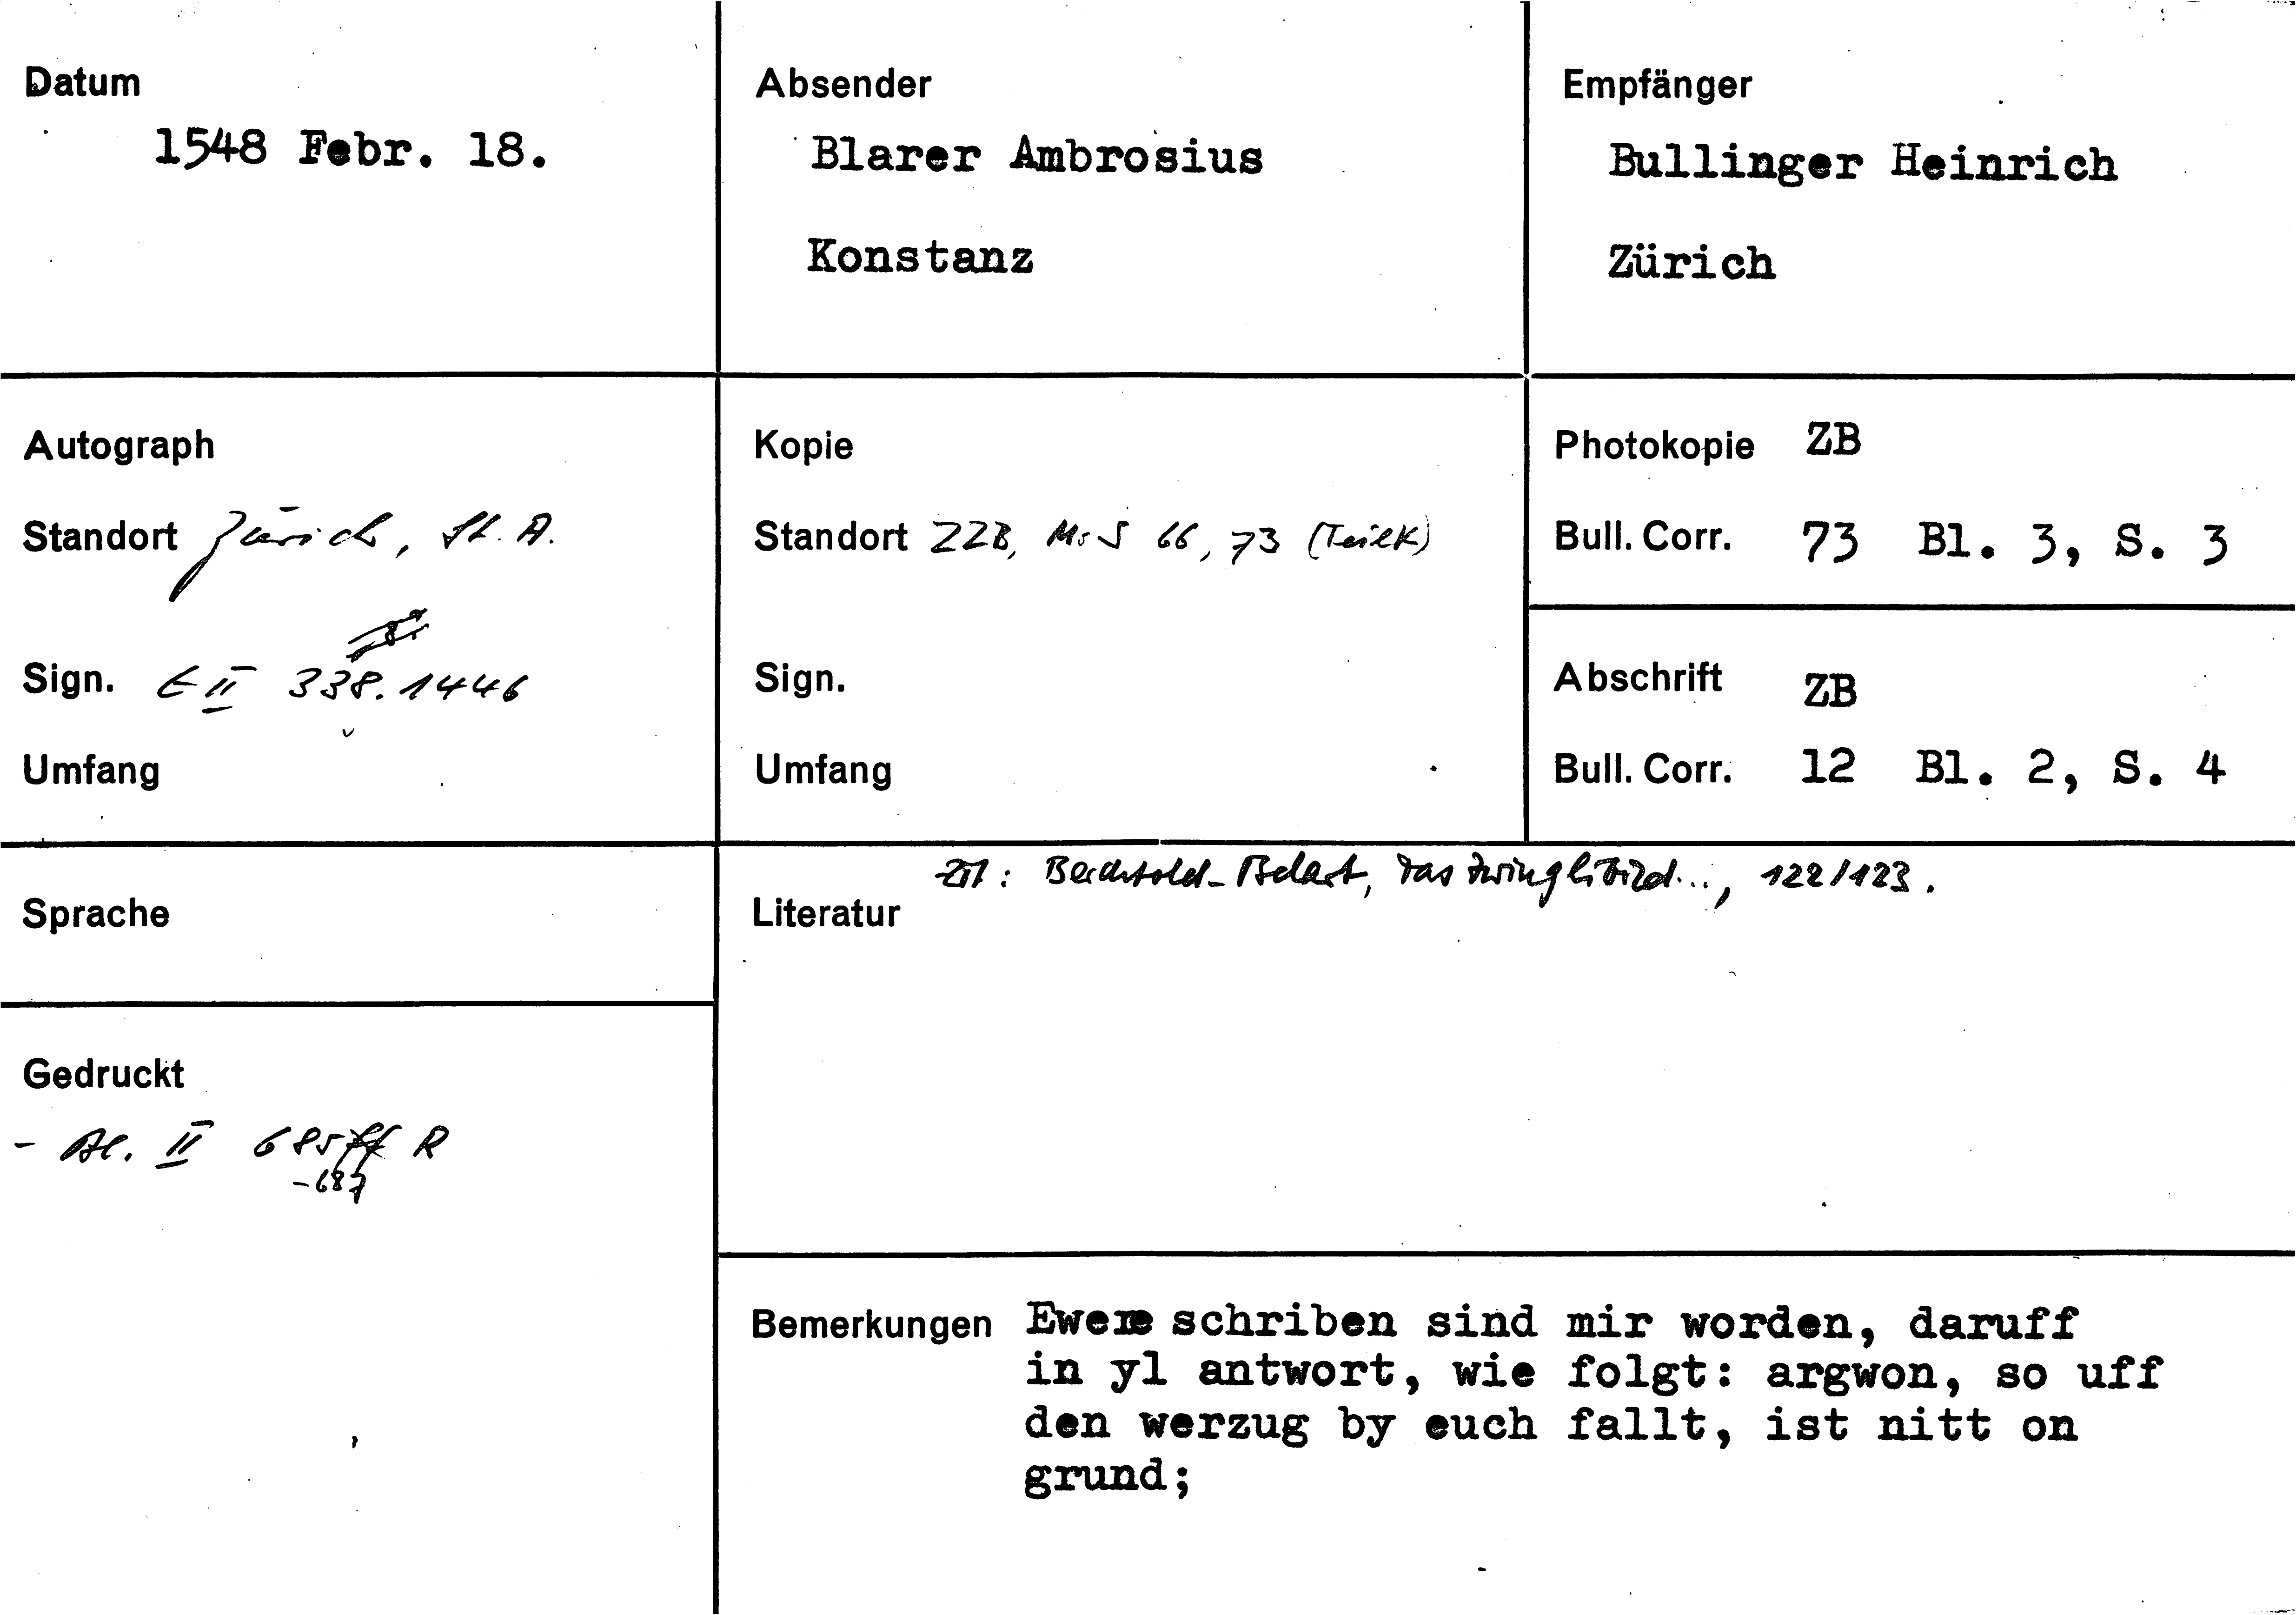 Datum
1548 Febr. 18.
Absender
Blarer Ambrosius
Konstanz
Empfänger
Bullinger Heinrich
Zürich
Autograph
Standort Zürich, St. A.
Sign. E II 338. 1446
Umfang
Kopie
Standort ZZB, Ms S 66, 73 (Teilk)
Sign.
Umfang
Photokopie ZB
Bull. Corr. 73 Bl. 3, S. 3
Abschrift ZB
Bull. Corr. 12 Bl. 2, S. 4
Sprache
Gedruckt
- Bl. II 685ff R
-687
Zit: Berchtold-Belart, Das Zwinglibild..., 122/123.
Literatur
Bemerkungen Ewere schriben sind mir worden, daruff
in yl antwort, wie folgt: argwon, so uff
den werzug by euch fallt, ist nitt on
grund;